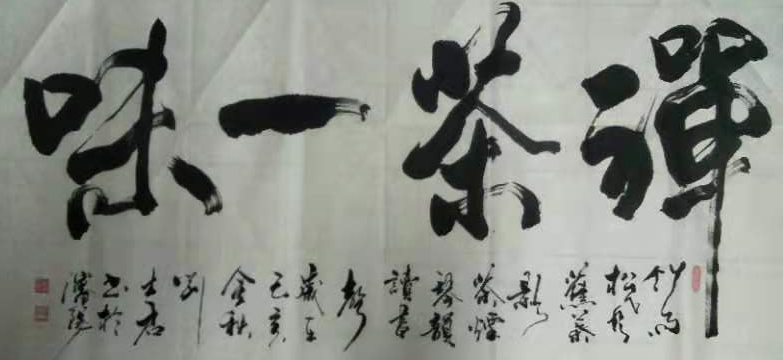 禪茶一味
竹雨
松風
蕉葉
影
茶煙
琴韻
讀書
聲
歲在
己亥
金秋
劉
士君
書於